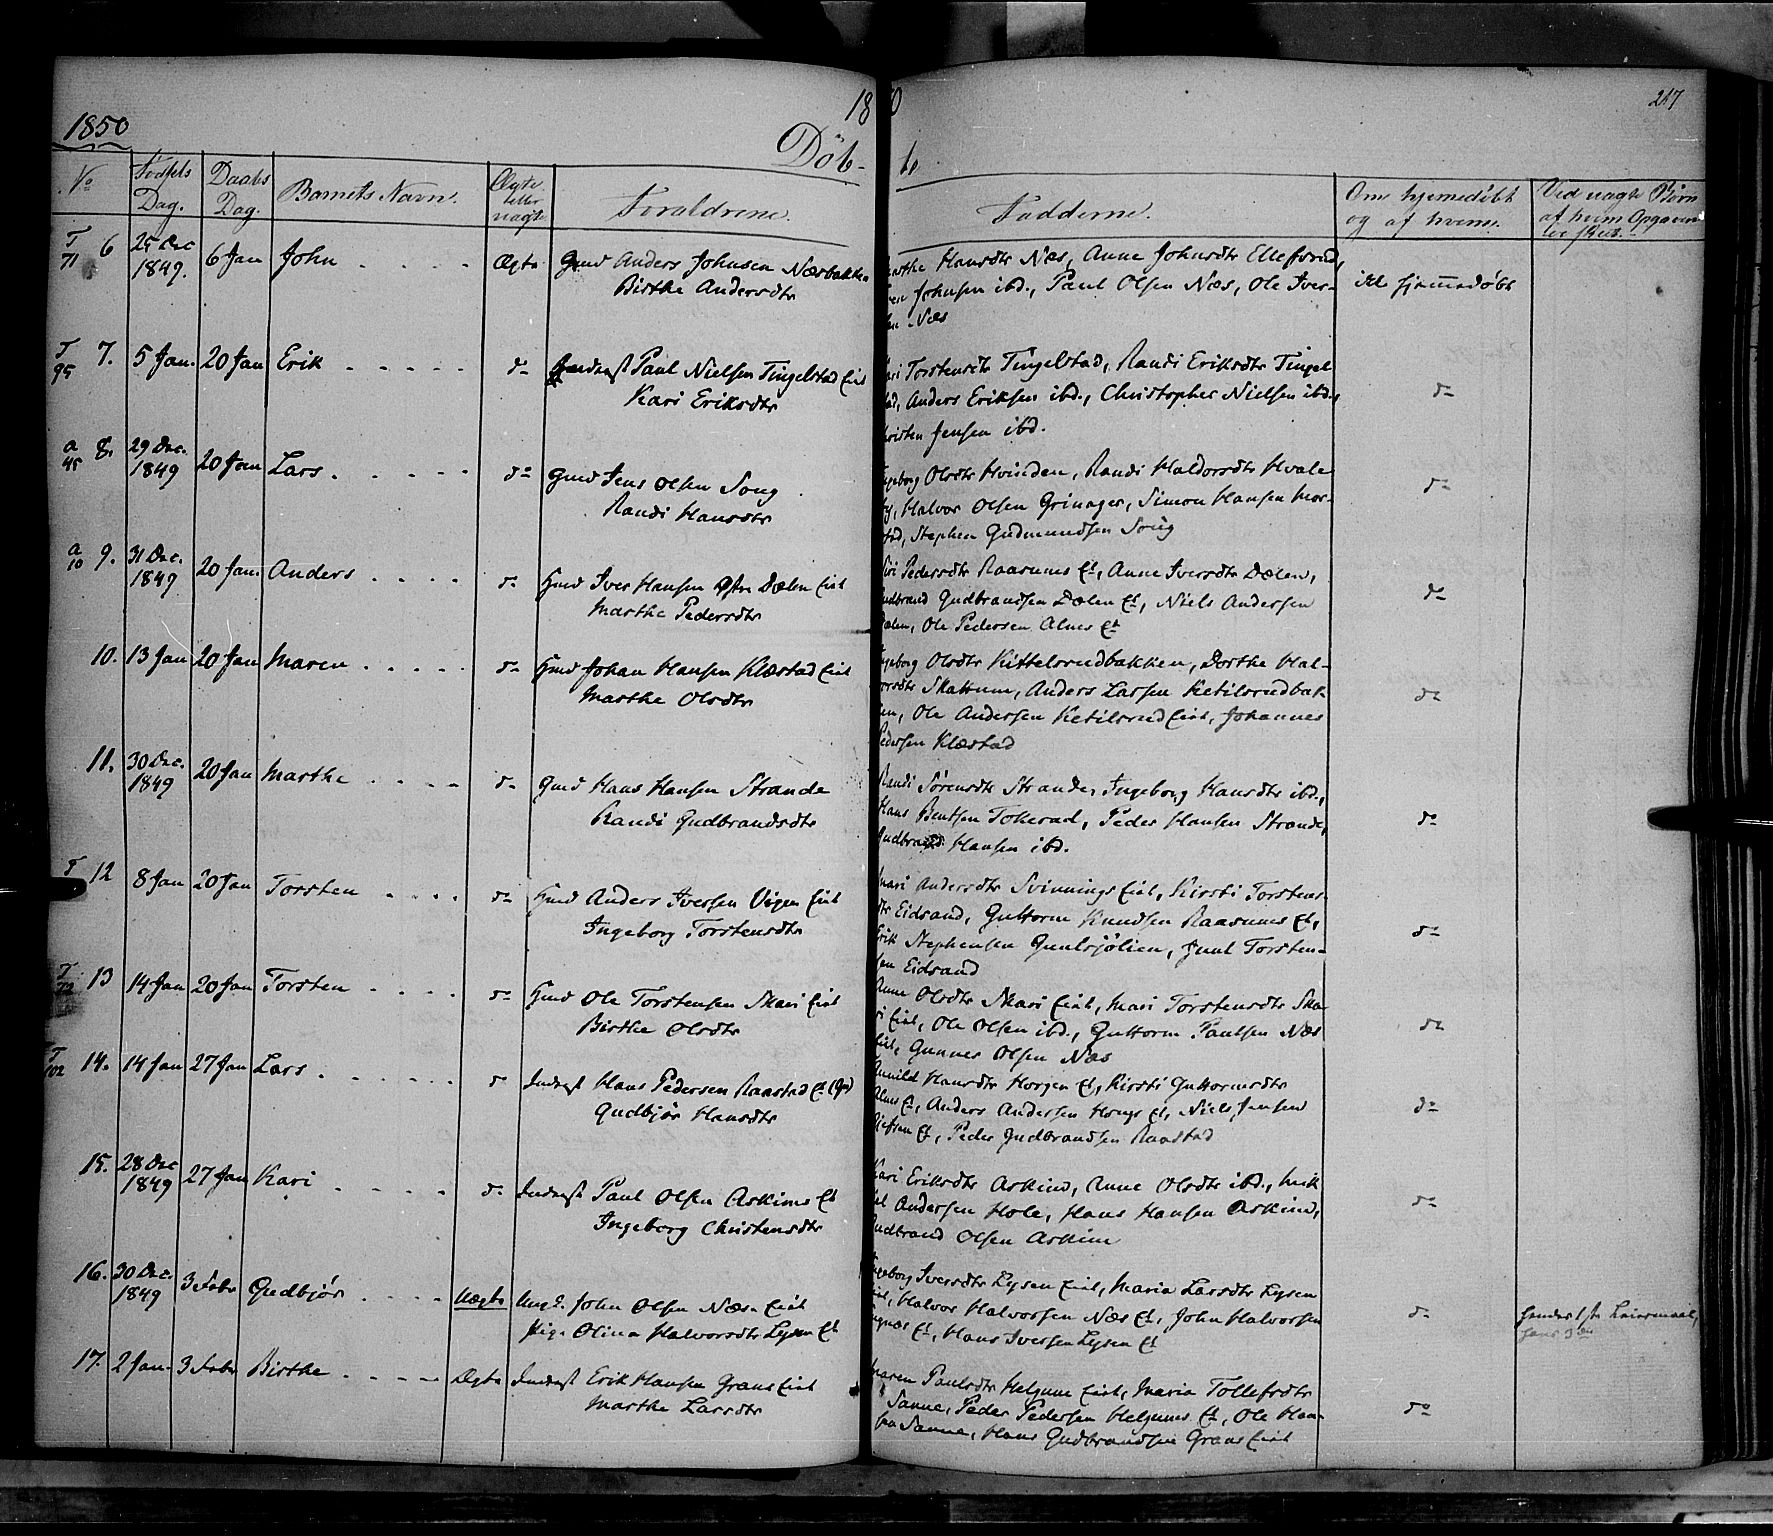 1850
18
0
217
Döb-
te
No
Fødsels Dag.
Daabs Dag.
Barnets Navn.
Ægte eller uægte
Forældrene.
Fadderne.
Om hjemedöbt og af hvem.
Ved uægte Börn af hvem Opgaven
T 71 6 25 Dec 1849. 6 Jan John Ægte Gmd Anders Johnsen Næsbakken
Birthe Andersdtr
Marthe Hansdtr Næs, Anne Johnsdtr Ellefsrud,
Johnsen ibd., Paul Olsen Næs, Ole Iver-
sen Næs
ikke hjemmedøbt
T 95 7. 5 Jan. 20 Jan Erik d- Inderst Paul Nielsen Tingelstad Eiet
Kari Eriksdtr
Kari Torstensdtr Tingelstad, Randi Eriksdtr Tingel
stad, Anders Eriksen ibd., Christopher Nielsen ibd.,
Christen Jensen ibd.
d-
a 45 8. 29 Dec. 1849 20 Jan Lars d- Gmd Jens Olsen Soug
Randi Hansdtr
Ingeborg Olsdtr Hvinden, Randi Haldorsdtr Hvale
by, Halvor Olsen Grinager, Simon Hansen Mor-
stad, Stephen Gudmundsen Soug
d-
a 10 9. 31 Dec. 1849 20 Jan. Anders d- Hmd Iver Hansen Østre Dælen Eiet
Marthe Pedersdtr
Siri Pedersdtr Raasnes Et, Anne Iversdtr Dælen,
Gudbrand Gudbrandsen Dælen Et, Niels Andersen
Dælen, Ole Pedersen Alnes Et
d-
10. 13 Jan 20 Jan Maren d- Hmd Johan Hansen Klæstad Eiet
Marthe Olsdtr
Ingeborg Olsdtr Kittelsrudbakken, Dorthe Hal-
vorsdtr Skattum, Anders Larsen Ketilsrudbak-
ken, Ole Andersen Ketilsrud Eiet, Johannes
Pedersen Klæstad
d-
11. 30 Dec. 1849 20 Jan Marthe d- Gmd Hans Hansen Strande
Randi Gudbrandsdtr
Randi Sörensdtr Strande, Ingeborg Hansdtr ibd.,
Hans Bentsen Tokerud, Peder Hansen Strande,
Gudbrand Hansen ibd.
d-
T 12 8 Jan 20 Jan Torsten d- Hmd Anders Iversen Vigen Eiet
Ingeborg Torstensdtr
Mari Andersdtr Svinnings Eiet, Kirsti Torstens-
dtr Eidsand, Guttorm Knudsen Raasnes Et,
Erik Stephensen Guulsjølien, Juul Torsten-
sen Eidsand
d-
T 72 13 14 Jan 20 Jan Torsten d- Hmd Ole Torstensen Skari Eiet
Birthe Olsdtr
Anne Olsdtr Skari Eiet, Mari Torstensdtr Ska-
ri Eiet, Ole Olsen ibd., Guttorm Paulsen Næs
Eiet, Gunner Olsen Næs
d-
T 102 14. 14 Jan 27 Jan Lars d Inderst Hans Pedersen Raastad Et
Gudbjör Hansdtr
Gunild Hansdtr Horgen Et, Kirsti Guttormsdtr
Alnes Et, Anders Andersen Et, Niels Jensen
Et, Peder Gudbrandsen Raastad
d-
15. 28 Dec 1849 27 Jan Kari d- Inderst Paul Olsen Askims Et
Ingeborg Christensdtr
Kari Eriksdtr Askim, Anne Olsdtr ibd., Mik
kel Andersen Hole, Hans Hansen Askim,
Gudbrand Olsen Askim
d-
16. 30 Dec. 1849 3 Febr Gudbjör Uægte Ungk. John Olsen Næs Eiet
Pige Olina Halvorsdtr Lysen Et
Ingeborg Iversdtr Lysen Eiet, Maria Larsdtr Lysen
Eiet, Halvor Halvorsen Næs Et, John Halvorsen
Et, Hans Iversen Lysen Et
d-
hendes 1ste Leiermaal,
hans 3die
17. 2 Jan. 3 Febr Birthe Ægte Inderst Erik Hansen Grans Eiet
Marthe Larsdtr
Maren Paulsdtr Helgum Eiet, Maria Tollefsdtr
Sanne, Peder Pedersen Helgums Et, Ole Han-
sen Sanne, Hans Gudbrandsen Grans Eiet
do